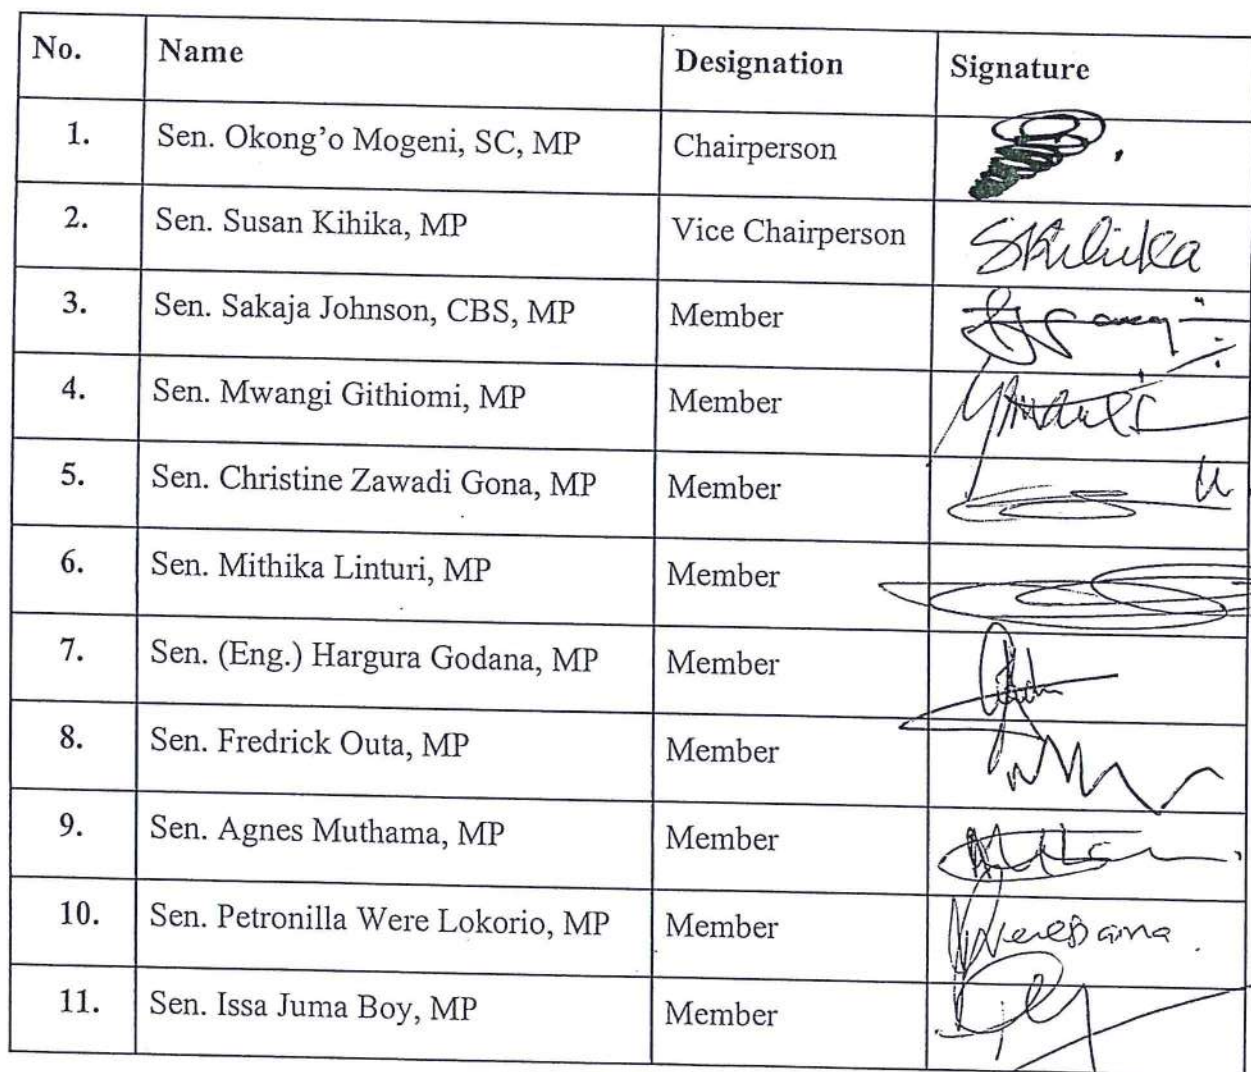 No. Name Designation Signature
1. Sen. Okong'o Mogeni, SC, MP Chairperson
2. Sen. Susan Kihika, MP Vice Chairperson SKihika
3. Sen. Sakaja Johnson, CBS, MP Member
4. Sen. Mwangi Githiomi, MP Member
5. Sen. Christine Zawadi Gona, MP Member
6. Sen. Mithika Linturi, MP Member
7. Sen. (Eng.) Hargura Godana, MP Member
8. Sen. Fredrick Outa, MP Member
9. Sen. Agnes Muthama, MP Member
10. Sen. Petronilla Were Lokorio, MP Member
11. Sen. Issa Juma Boy, MP Member